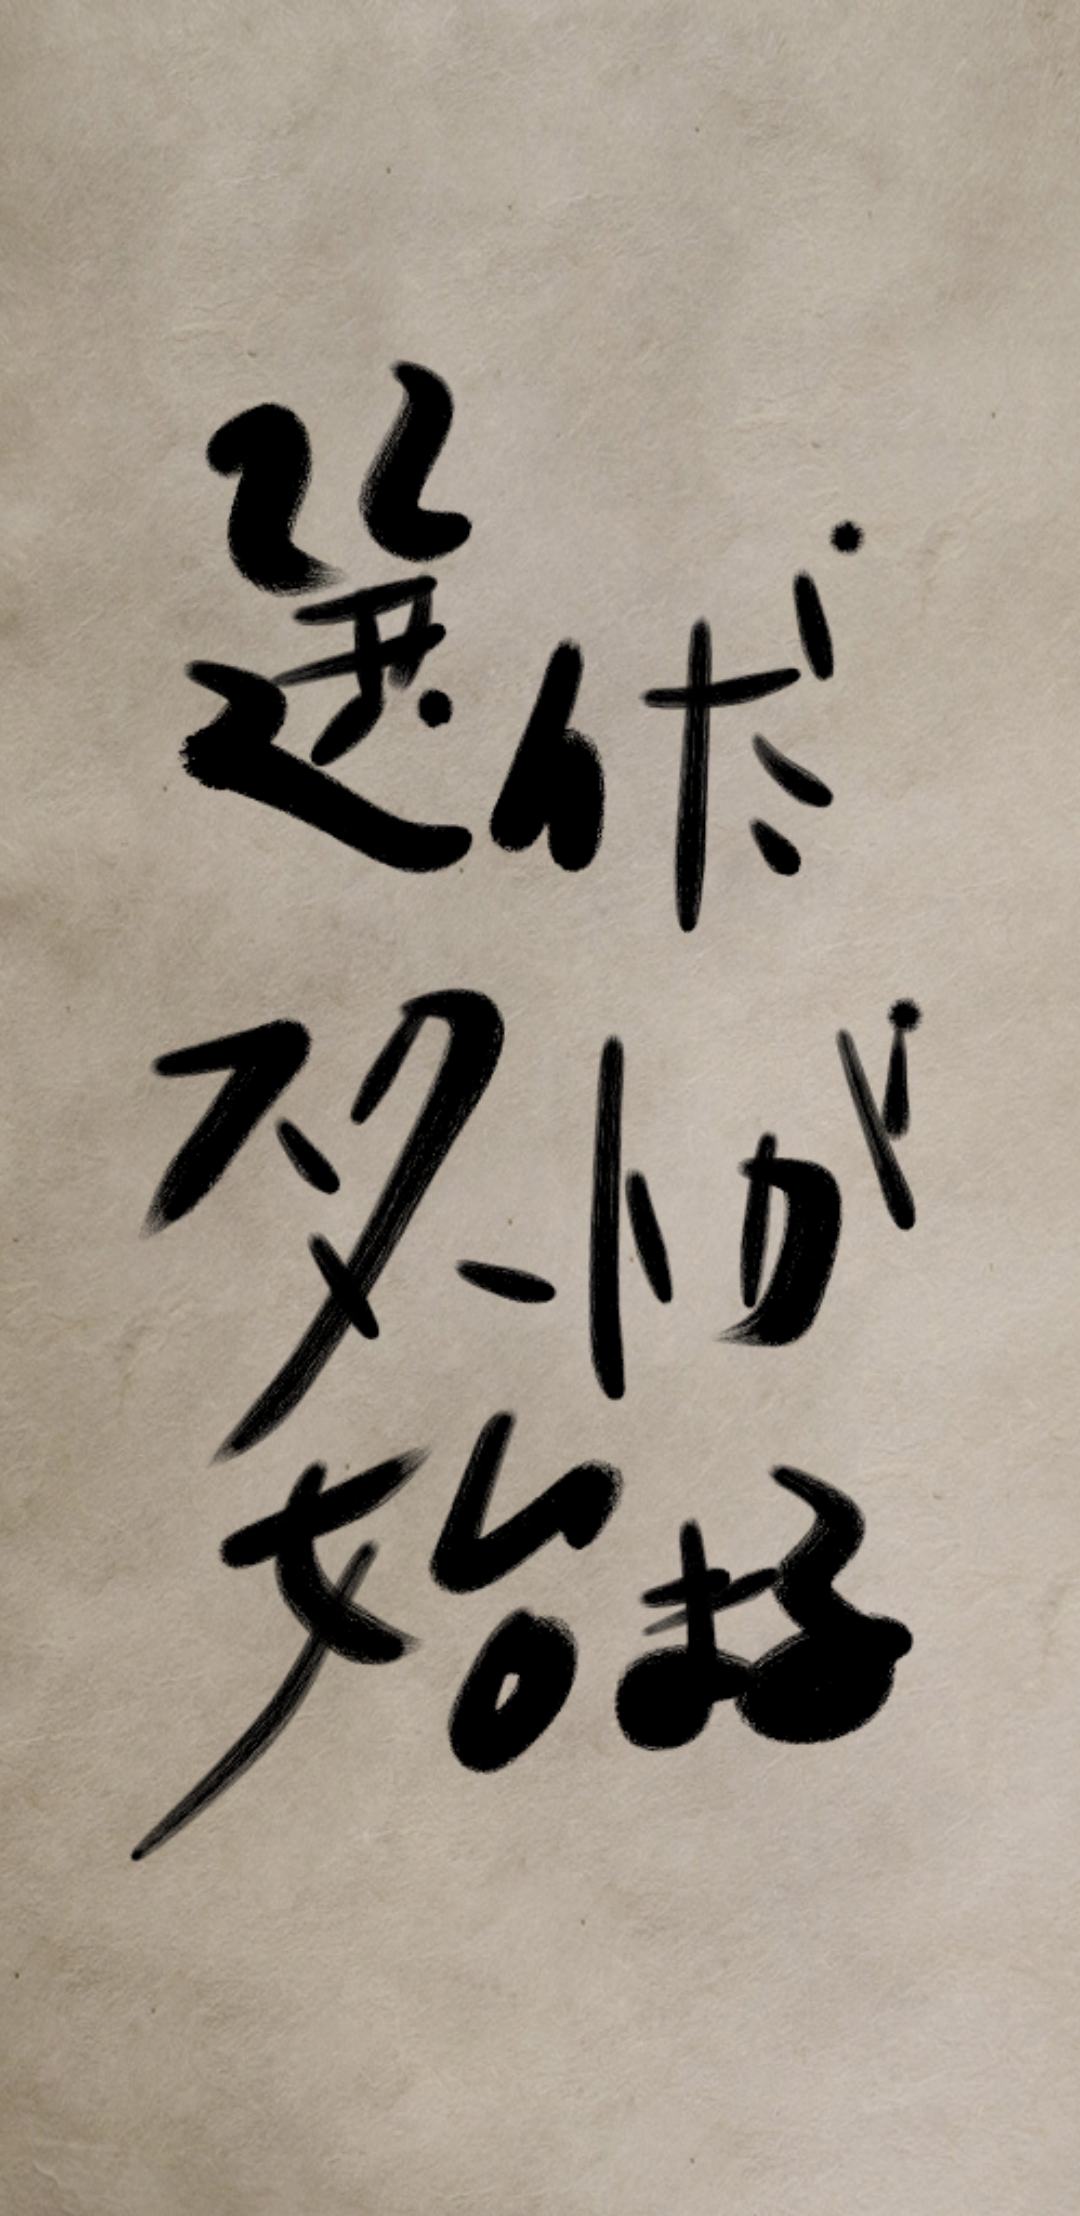 選んだ
スタートが
始まる